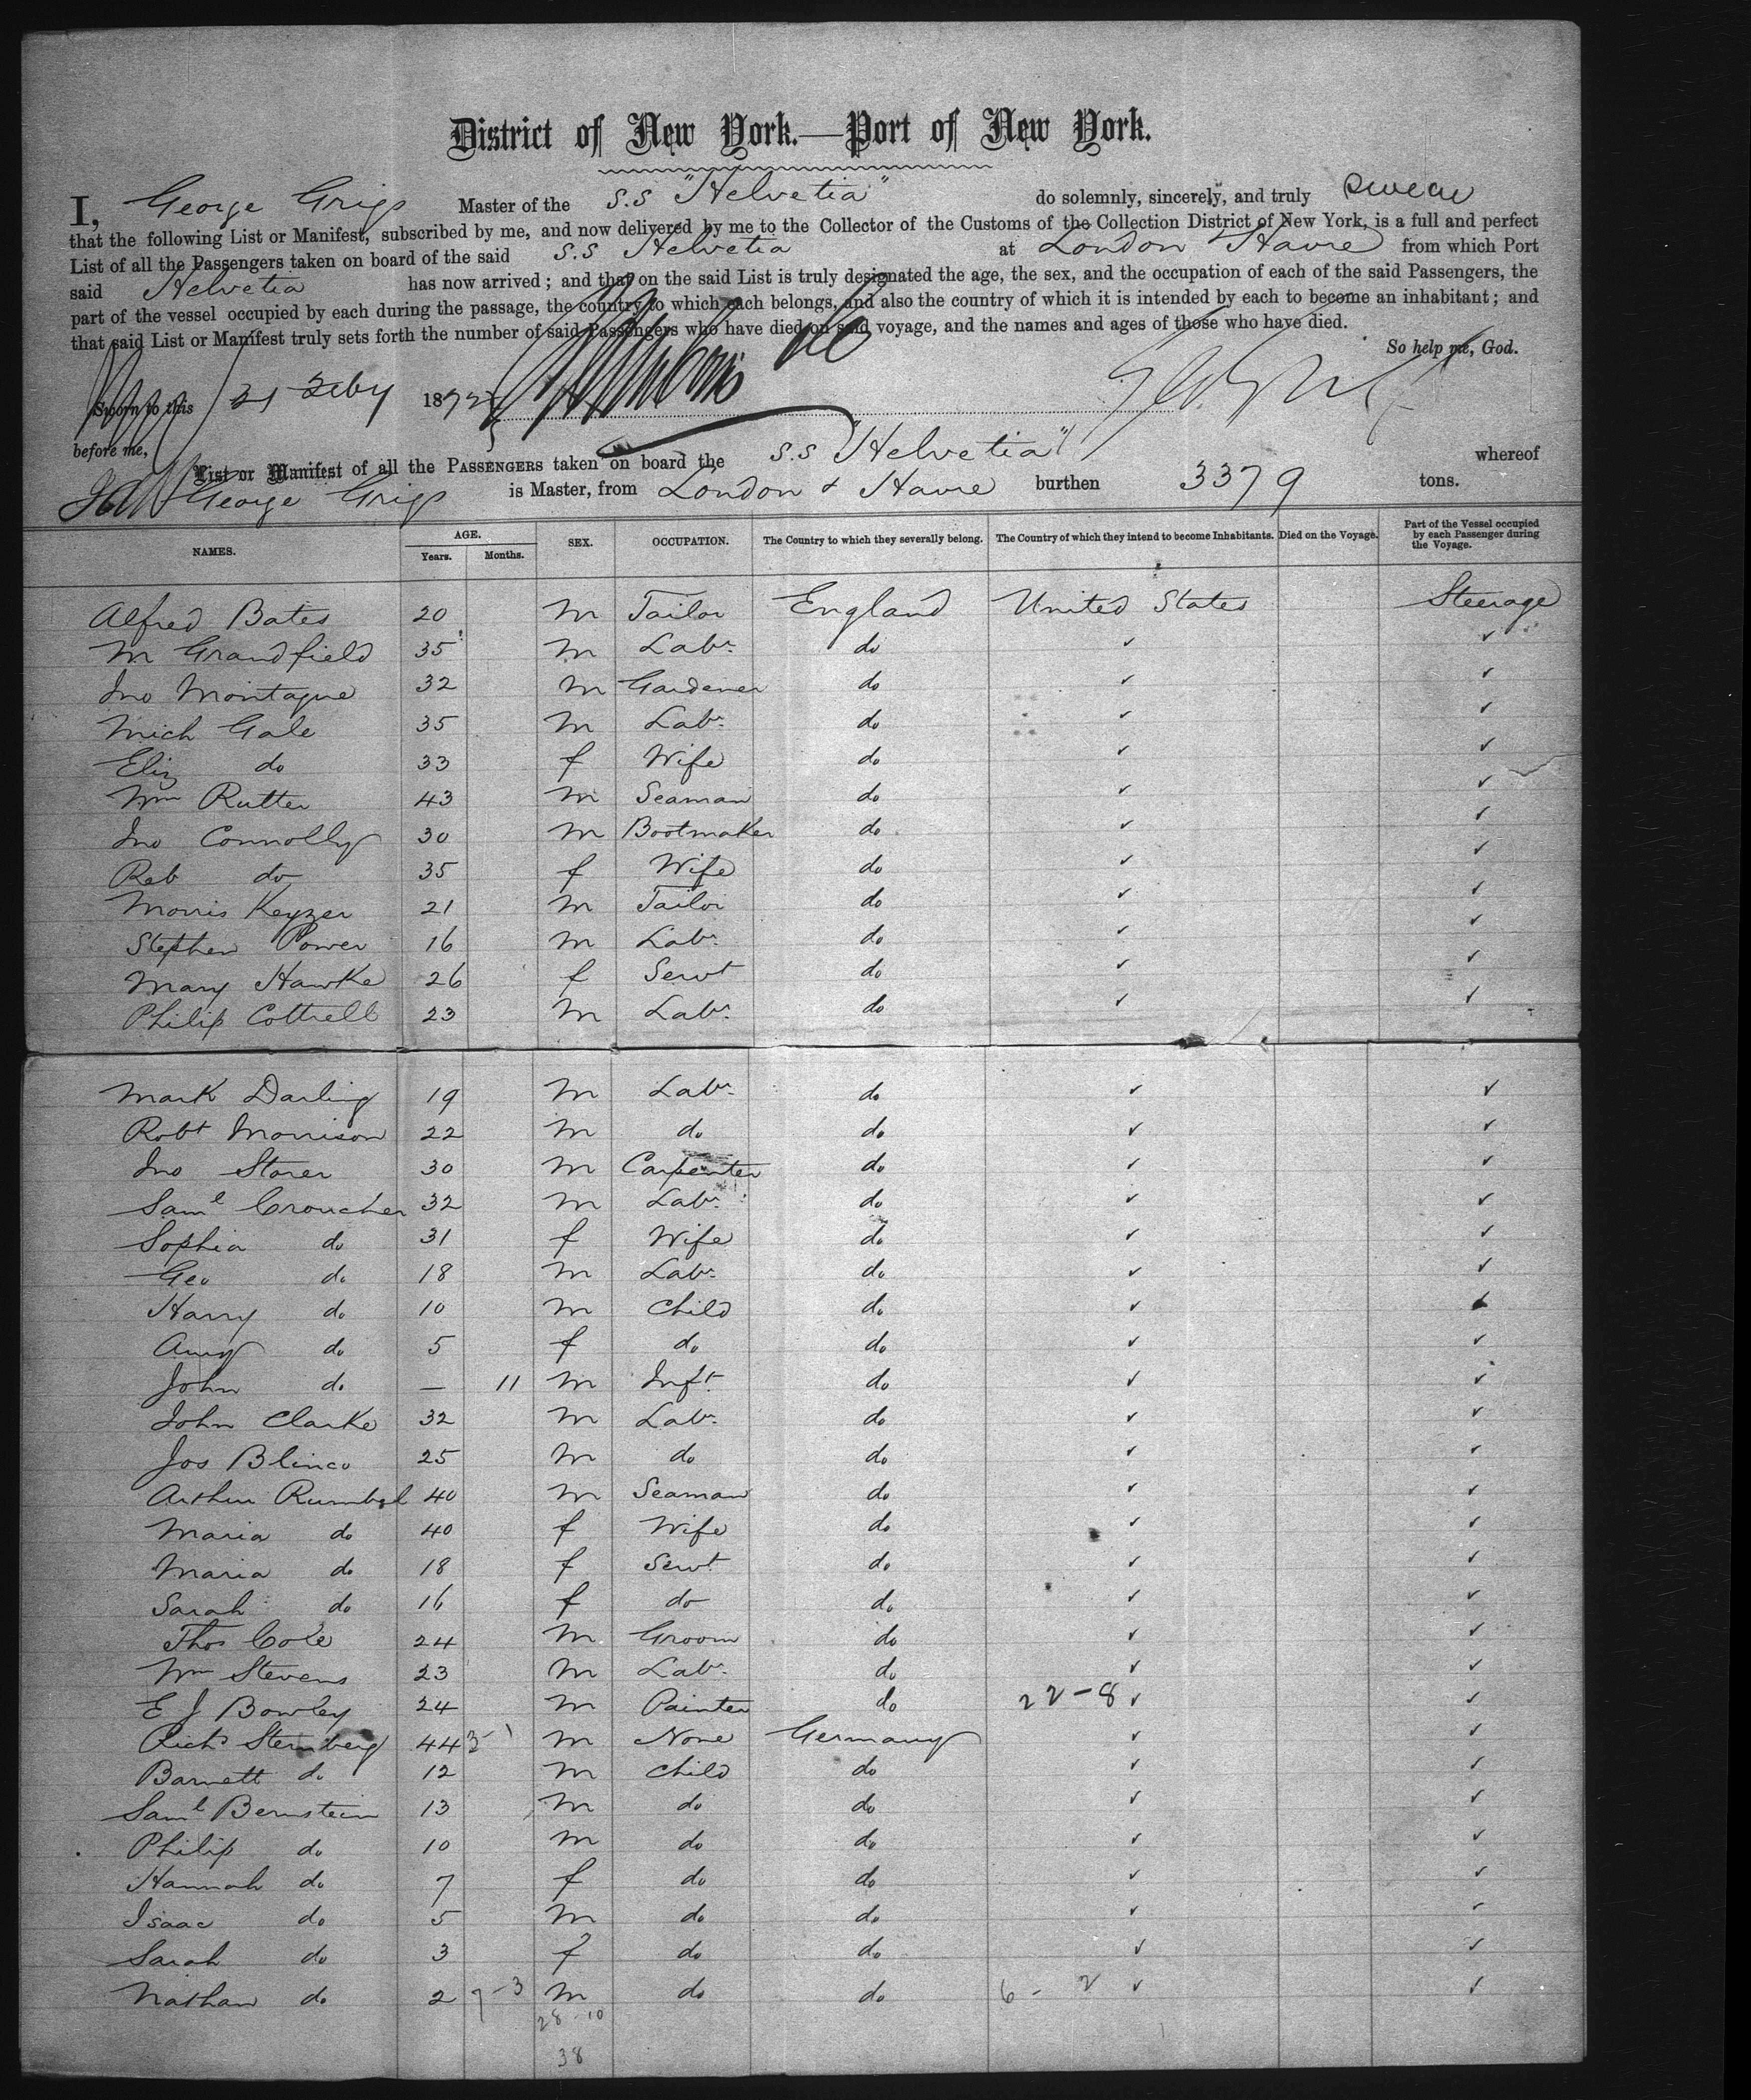 District of New York.—Port of New York.
I, George Grigs Master of the S.S "Helvetia" do solemnly, sincerely, and truly swear
that the following List or Manifest, subscribed by me, and now delivered by me to the Collector of the Customs of the Collection District of New York, is a full and perfect
List of all the Passengers taken on board of the said S.S Helvetia at London Havre from which Port
said Helvetia has now arrived; and that on the said List is truly designated the age, the sex, and the occupation of each of the said Passengers, the
part of the vessel occupied by each during the passage, the country to which each belongs, and also the country of which it is intended by each to become an inhabitant; and
that said List or Manifest truly sets forth the number of said Passengers who have died on said voyage, and the names and ages of those who have died.
So help me, God.
Sworn to this 21 Feby 187
before me,
List or Manifest of all the PASSENGERS taken on board the S.S "Helvetia" whereof
George Grigs is Master, from London & Havre burthen 3379 tons.
NAMES. AGE. Years. Months. SEX. OCCUPATION. The Country to which they severally belong. The Country of which they intend to become Inhabitants. Died on the Voyage. Part of the Vessel occupied by each Passenger during the Voyage.
Alfred Bates 20 m Tailor England United States Steerage
M Grandfield 35 m Labr. do ✓ ✓
Jno Montague 32 m Gardener do ✓ ✓
Mich Gale 35 m Labr. do ✓ ✓
Eliz do 33 f Wife do ✓ ✓
Wm Rutter 43 m Seaman do ✓ ✓
Jno Connolly 30 m Bootmaker do ✓ ✓
Reb do 35 f Wife do ✓ ✓
Morris Keyzer 21 m Tailor do ✓ ✓
Stephen Power 16 m Labr. do ✓ ✓
Mary Hawke 26 f Servt do ✓ ✓
Philip Cottrell 23 m Labr. do ✓ ✓
Mark Darling 19 m Labr. do ✓ ✓
Robt Morrison 22 m do do ✓ ✓
Jno Storer 30 m Carpenter do ✓ ✓
Saml Croucher 32 m Labr. do ✓ ✓
Sophia do 31 f Wife do ✓ ✓
Geo do 18 m Labr. do ✓ ✓
Harry do 10 m Child do ✓ ✓
Amy do 5 f do do ✓ ✓
John do — 11 m Inft. do ✓ ✓
John Clarke 32 m Labr. do ✓ ✓
Jos Blinco 25 m do do ✓ ✓
Arthur Rumbol 40 m Seaman do ✓ ✓
Maria do 40 f Wife do ✓ ✓
Maria do 18 f Servt do ✓ ✓
Sarah do 16 f do do ✓ ✓
Thos Cole 24 m Groom do ✓ ✓
Wm Stevens 23 m Labr. do ✓ ✓
E J Bowley 24 m Painter do 22-8 ✓ ✓
Richd Sternberg 44 m None Germany ✓ ✓
Barnett do 12 m Child do ✓ ✓
Saml Bernstein 13 m do do ✓ ✓
Philip do 10 m do do ✓ ✓
Hannah do 7 f do do ✓ ✓
Isaac do 5 m do do ✓ ✓
Sarah do 3 f do do ✓ ✓
Nathan do 2 7-3 m do do 6 - 2 ✓ ✓
28-10
38